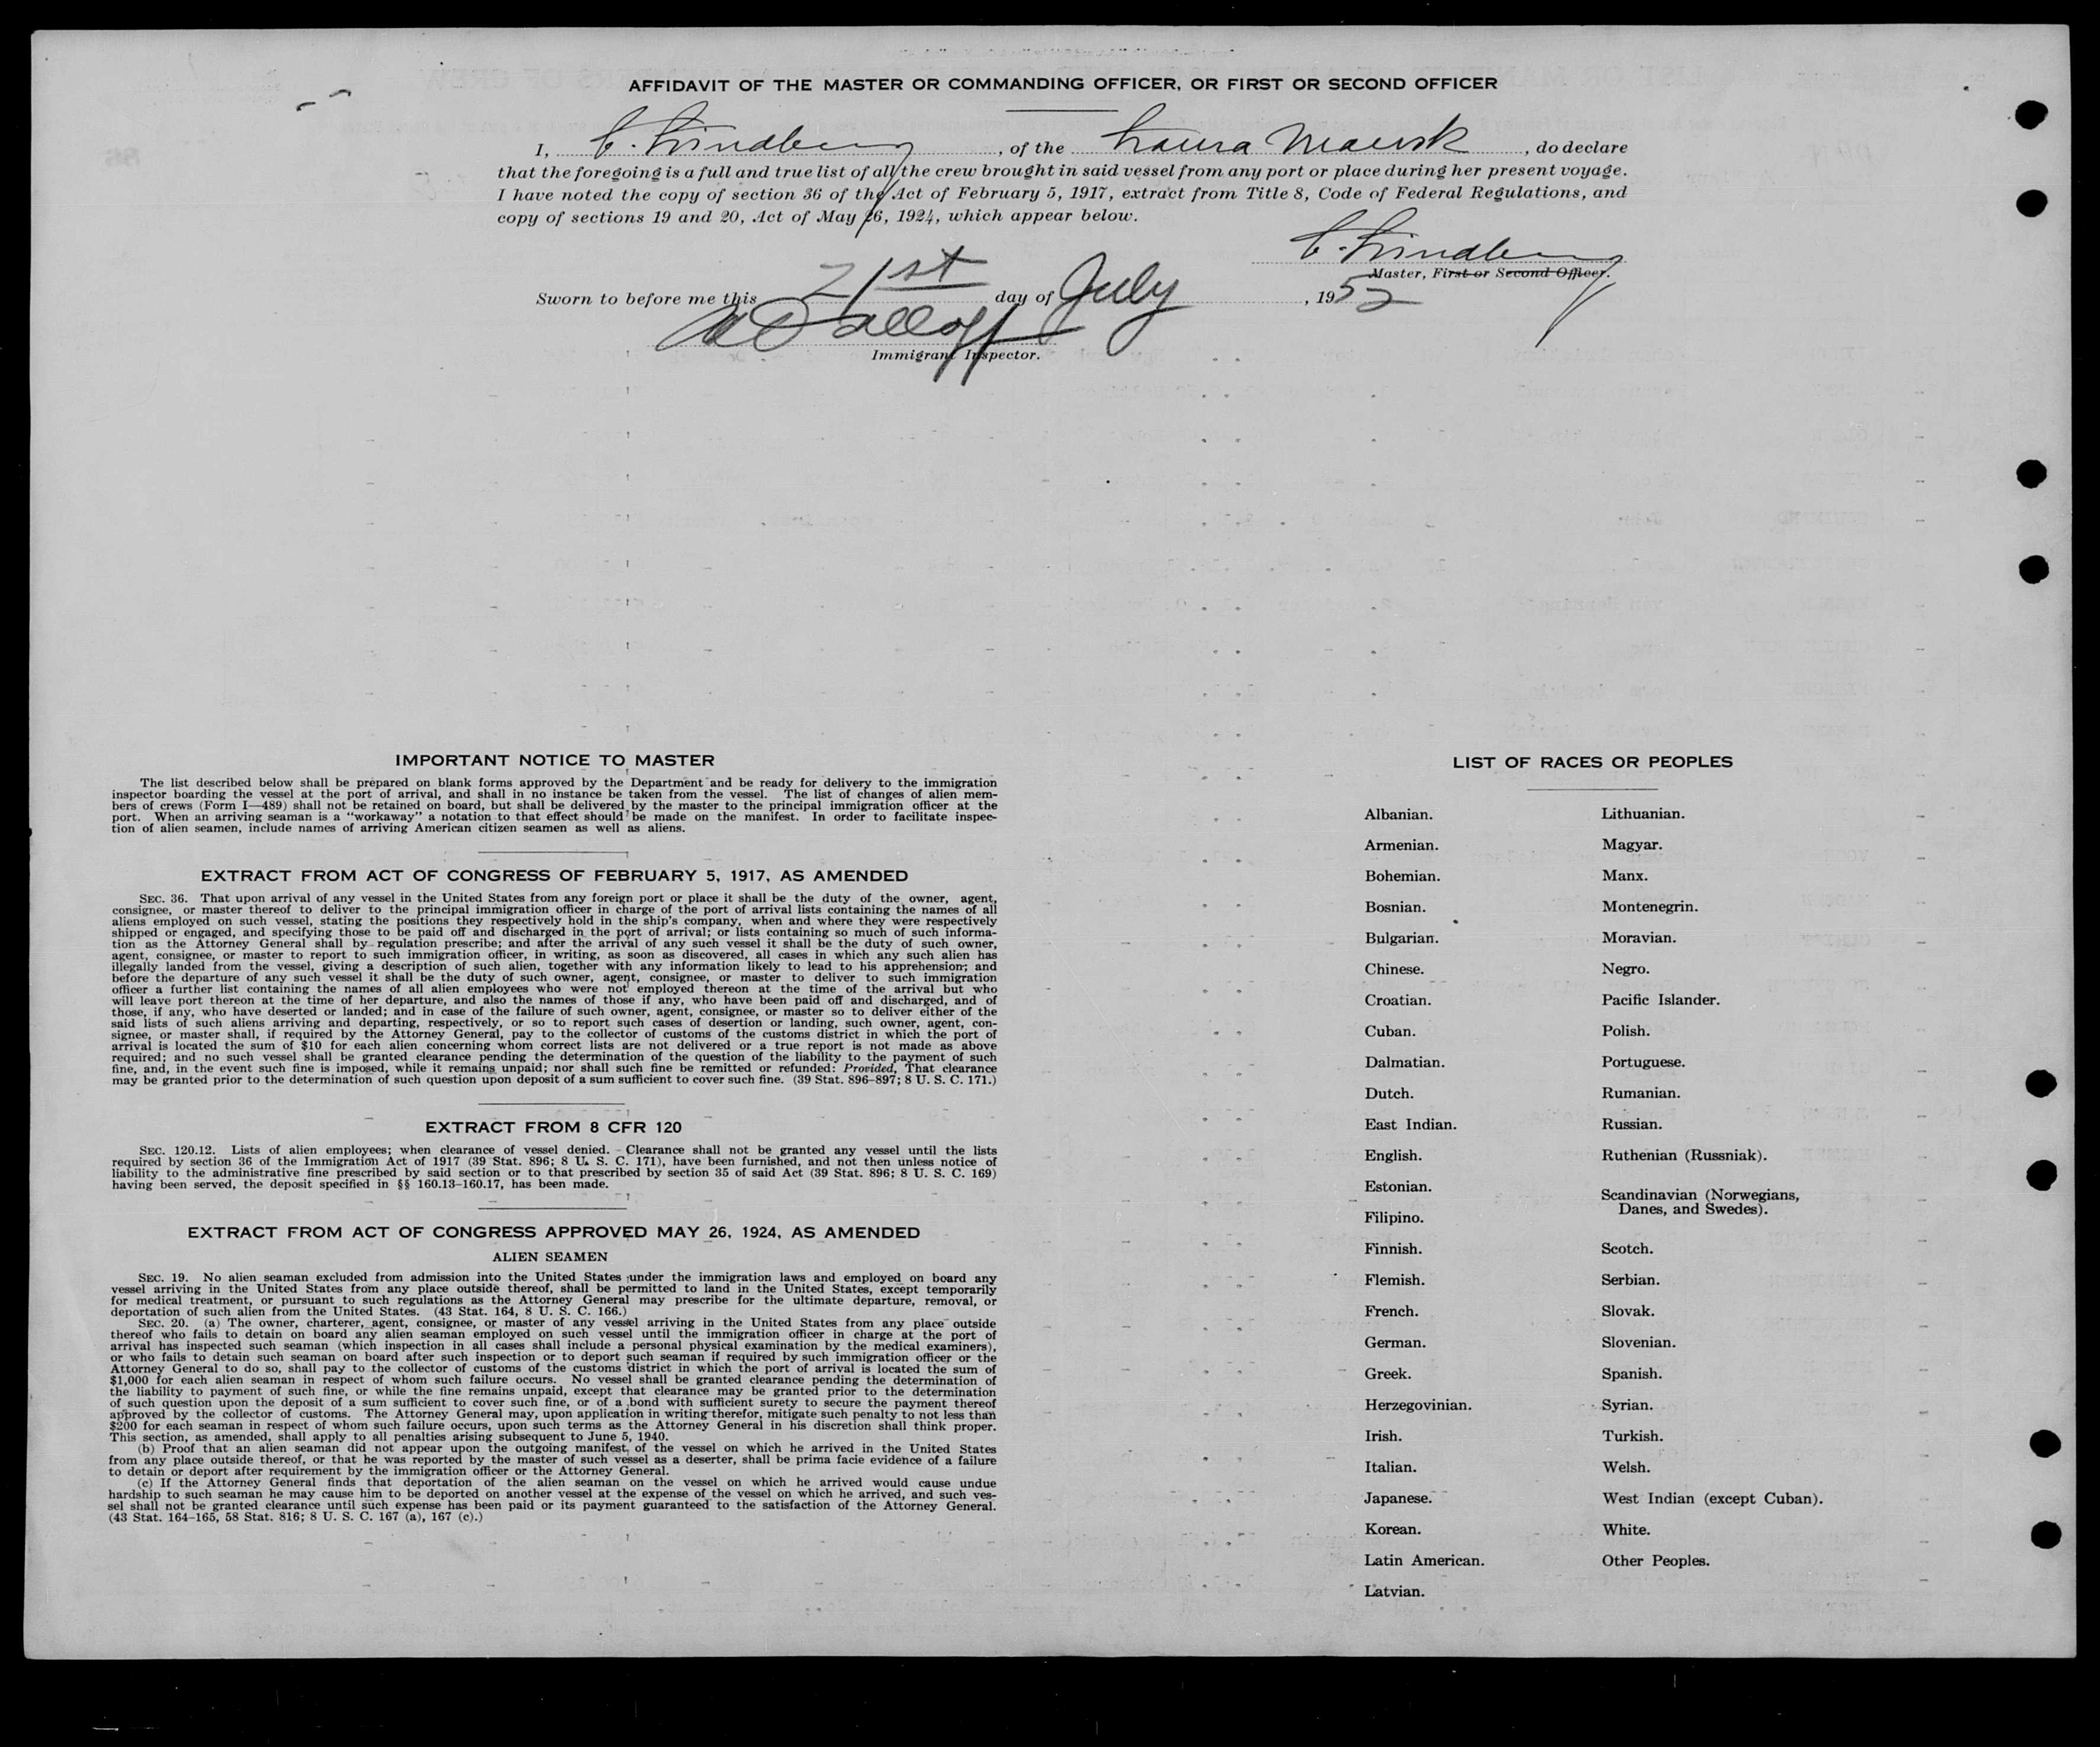 AFFIDAVIT OF THE MASTER OR COMMANDING OFFICER, OR FIRST OR SECOND OFFICER
I, C. Lindberg, of the Laura Maersk, do declare
that the foregoing is a full and true list of all the crew brought in said vessel from any port or place during her present voyage.
I have noted the copy of section 36 of the Act of February 5, 1917, extract from Title 8, Code of Federal Regulations, and
copy of sections 19 and 20, Act of May 26, 1924, which appear below.
C. Lindberg
Master, First or Second Officer.
Sworn to before me this 21st day of July, 1952
Immigrant Inspector.
IMPORTANT NOTICE TO MASTER
The list described below shall be prepared on blank forms approved by the Department and be ready for delivery to the immigration
inspector boarding the vessel at the port of arrival, and shall in no instance be taken from the vessel. The list of changes of alien mem-
bers of crews (Form I—489) shall not be retained on board, but shall be delivered by the master to the principal immigration officer at the
port. When an arriving seaman is a "workaway" a notation to that effect should be made on the manifest. In order to facilitate inspec-
tion of alien seamen, include names of arriving American citizen seamen as well as aliens.
EXTRACT FROM ACT OF CONGRESS OF FEBRUARY 5, 1917, AS AMENDED
SEC. 36. That upon arrival of any vessel in the United States from any foreign port or place it shall be the duty of the owner, agent,
consignee, or master thereof to deliver to the principal immigration officer in charge of the port of arrival lists containing the names of all
aliens employed on such vessel, stating the positions they respectively hold in the ship's company, when and where they were respectively
shipped or engaged, and specifying those to be paid off and discharged in the port of arrival; or lists containing so much of such informa-
tion as the Attorney General shall by regulation prescribe; and after the arrival of any such vessel it shall be the duty of such owner,
agent, consignee, or master to report to such immigration officer, in writing, as soon as discovered, all cases in which any such alien has
illegally landed from the vessel, giving a description of such alien, together with any information likely to lead to his apprehension; and
before the departure of any such vessel it shall be the duty of such owner, agent, consignee, or master to deliver to such immigration
officer a further list containing the names of all alien employees who were not employed thereon at the time of the arrival but who
will leave port thereon at the time of her departure, and also the names of those if any, who have been paid off and discharged, and of
those, if any, who have deserted or landed; and in case of the failure of such owner, agent, consignee, or master so to deliver either of the
said lists of such aliens arriving and departing, respectively, or so to report such cases of desertion or landing, such owner, agent, con-
signee, or master shall, if required by the Attorney General, pay to the collector of customs of the customs district in which the port of
arrival is located the sum of $10 for each alien concerning whom correct lists are not delivered or a true report is not made as above
required; and no such vessel shall be granted clearance pending the determination of the question of the liability to the payment of such
fine, and, in the event such fine is imposed, while it remains unpaid; nor shall such fine be remitted or refunded: Provided, That clearance
may be granted prior to the determination of such question upon deposit of a sum sufficient to cover such fine. (39 Stat. 896–897; 8 U. S. C. 171.)
EXTRACT FROM 8 CFR 120
SEC. 120.12. Lists of alien employees; when clearance of vessel denied. - Clearance shall not be granted any vessel until the lists
required by section 36 of the Immigration Act of 1917 (39 Stat. 896; 8 U. S. C. 171), have been furnished, and not then unless notice of
liability to the administrative fine prescribed by said section or to that prescribed by section 35 of said Act (39 Stat. 896; 8 U. S. C. 169)
having been served, the deposit specified in §§ 160.13–160.17, has been made.
EXTRACT FROM ACT OF CONGRESS APPROVED MAY 26, 1924, AS AMENDED
ALIEN SEAMEN
SEC. 19. No alien seaman excluded from admission into the United States under the immigration laws and employed on board any
vessel arriving in the United States from any place outside thereof, shall be permitted to land in the United States, except temporarily
for medical treatment, or pursuant to such regulations as the Attorney General may prescribe for the ultimate departure, removal, or
deportation of such alien from the United States. (43 Stat. 164, 8 U. S. C. 166.)
SEC. 20. (a) The owner, charterer, agent, consignee, or master of any vessel arriving in the United States from any place outside
thereof who fails to detain on board any alien seaman employed on such vessel until the immigration officer in charge at the port of
arrival has inspected such seaman (which inspection in all cases shall include a personal physical examination by the medical examiners),
or who fails to detain such seaman on board after such inspection or to deport such seaman if required by such immigration officer or the
Attorney General to do so, shall pay to the collector of customs of the customs district in which the port of arrival is located the sum of
$1,000 for each alien seaman in respect of whom such failure occurs. No vessel shall be granted clearance pending the determination of
the liability to payment of such fine, or while the fine remains unpaid, except that clearance may be granted prior to the determination
of such question upon the deposit of a sum sufficient to cover such fine, or of a bond with sufficient surety to secure the payment thereof
approved by the collector of customs. The Attorney General may, upon application in writing therefor, mitigate such penalty to not less than
$200 for each seaman in respect of whom such failure occurs, upon such terms as the Attorney General in his discretion shall think proper.
This section, as amended, shall apply to all penalties arising subsequent to June 5, 1940.
(b) Proof that an alien seaman did not appear upon the outgoing manifest of the vessel on which he arrived in the United States
from any place outside thereof, or that he was reported by the master of such vessel as a deserter, shall be prima facie evidence of a failure
to detain or deport after requirement by the immigration officer or the Attorney General.
(c) If the Attorney General finds that deportation of the alien seaman on the vessel on which he arrived would cause undue
hardship to such seaman he may cause him to be deported on another vessel at the expense of the vessel on which he arrived, and such ves-
sel shall not be granted clearance until such expense has been paid or its payment guaranteed to the satisfaction of the Attorney General.
(43 Stat. 164–165, 58 Stat. 816; 8 U. S. C. 167 (a), 167 (c).)
LIST OF RACES OR PEOPLES
Albanian.
Armenian.
Bohemian.
Bosnian.
Bulgarian.
Chinese.
Croatian.
Cuban.
Dalmatian.
Dutch.
East Indian.
English.
Estonian.
Filipino.
Finnish.
Flemish.
French.
German.
Greek.
Herzegovinian.
Irish.
Italian.
Japanese.
Korean.
Latin American.
Latvian.
Lithuanian.
Magyar.
Manx.
Montenegrin.
Moravian.
Negro.
Pacific Islander.
Polish.
Portuguese.
Rumanian.
Russian.
Ruthenian (Russniak).
Scandinavian (Norwegians,
Danes, and Swedes).
Scotch.
Serbian.
Slovak.
Slovenian.
Spanish.
Syrian.
Turkish.
Welsh.
West Indian (except Cuban).
White.
Other Peoples.